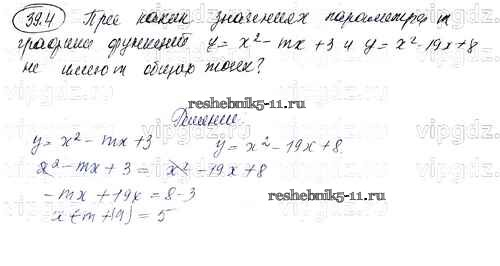 39.4 При каких значениях параметра m
графики функций y = x² - mx + 3 и y = x² - 19x + 8
не имеют общих точек?
reshebnik5-11.ru
Решение.
y = x² - mx + 3    y = x² - 19x + 8
x² - mx + 3 = x² - 19x + 8
-mx + 19x = 8-3
reshebnik5-11.ru
x(-m+19) = 5